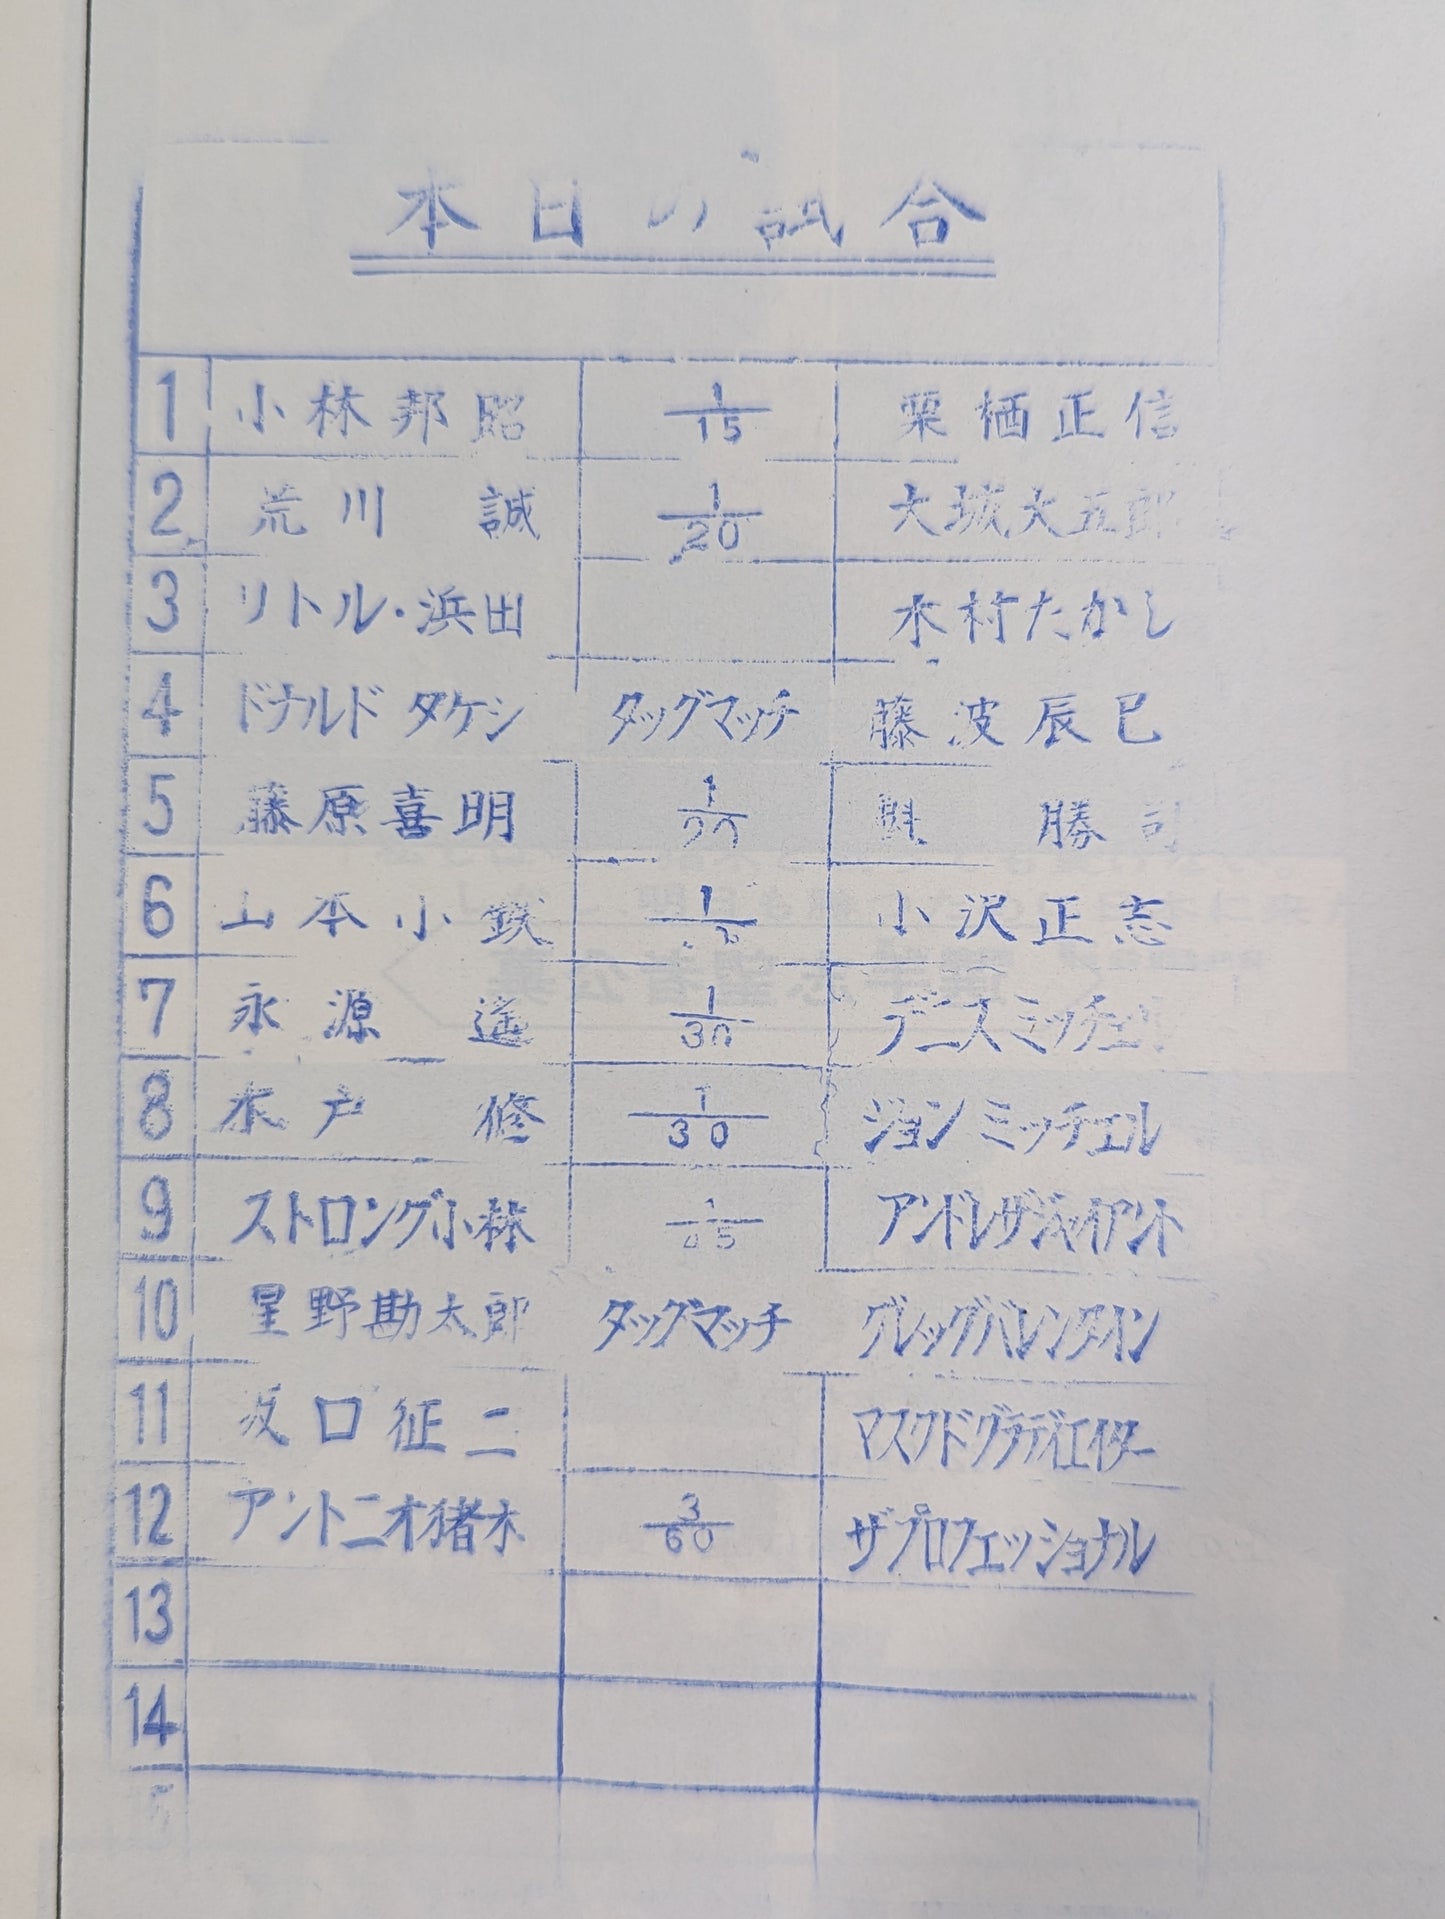 本日の試合
1 小林邦昭 1/15 栗栖正信
2 荒川 誠 1/20 大城大五郎
3 リトル・浜田 木村たかし
4 ドナルド タケシ タッグマッチ 藤波辰巳
5 藤原喜明 1/20 勝司
6 山本小鉄 1 小沢正志
7 永源 遙 1/30 デニス ミッチェル
8 木戸 修 1/30 ジョン ミッチェル
9 ストロング小林 1/45 アンドレザジャイアント
10 星野勘太郎 タッグマッチ グレッグバレンタイン
11 坂口征二 マスクドグラディエイター
12 アントニオ猪木 3/60 ザプロフェッショナル
13
14